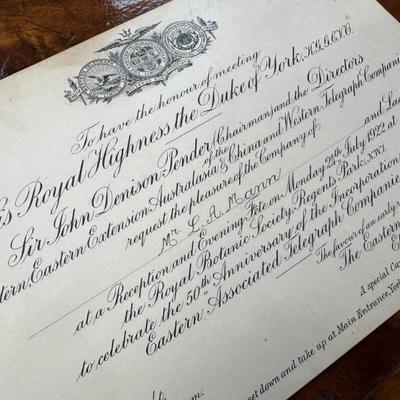 To have the honour of meeting
His Royal Highness the Duke of York, K.G., G.C.V.O.
Sir John Denison Pender (Chairman) and the Directors
of the
Eastern, Eastern Extension Australasia & China and Western Telegraph Companies
request the pleasure of the Company of
Mr. L. A. Mann and
at a Reception and Evening Fête on Monday July 1922 at
the Royal Botanic Society, Regents Park, N.W.1.
to celebrate the 50th Anniversary of the Incorporation
Eastern & Associated Telegraph Companies
The favour of an early
The Eastern
A special
set down and take up at Main Entrance, York